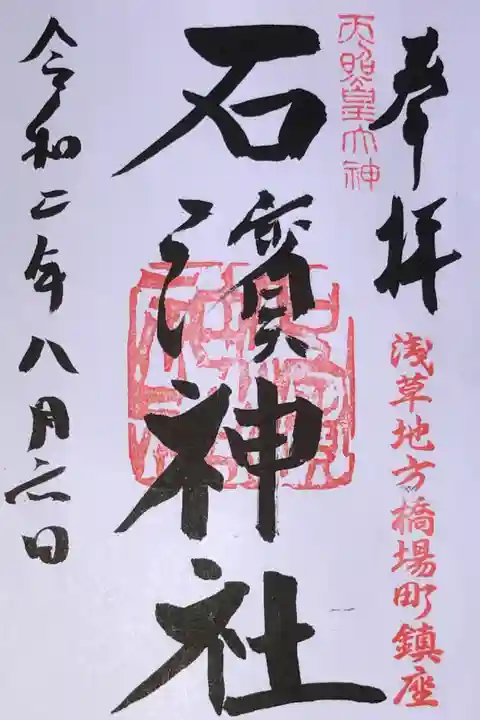 奉拝
浅草地方橋場町鎮座
天照皇大神
石濱神社
令和二年八月六日